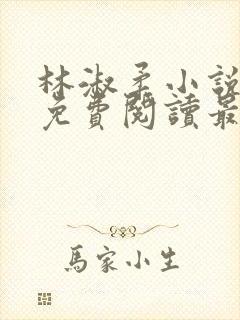 林淑柔小說
免費閱讀最
馬家小生